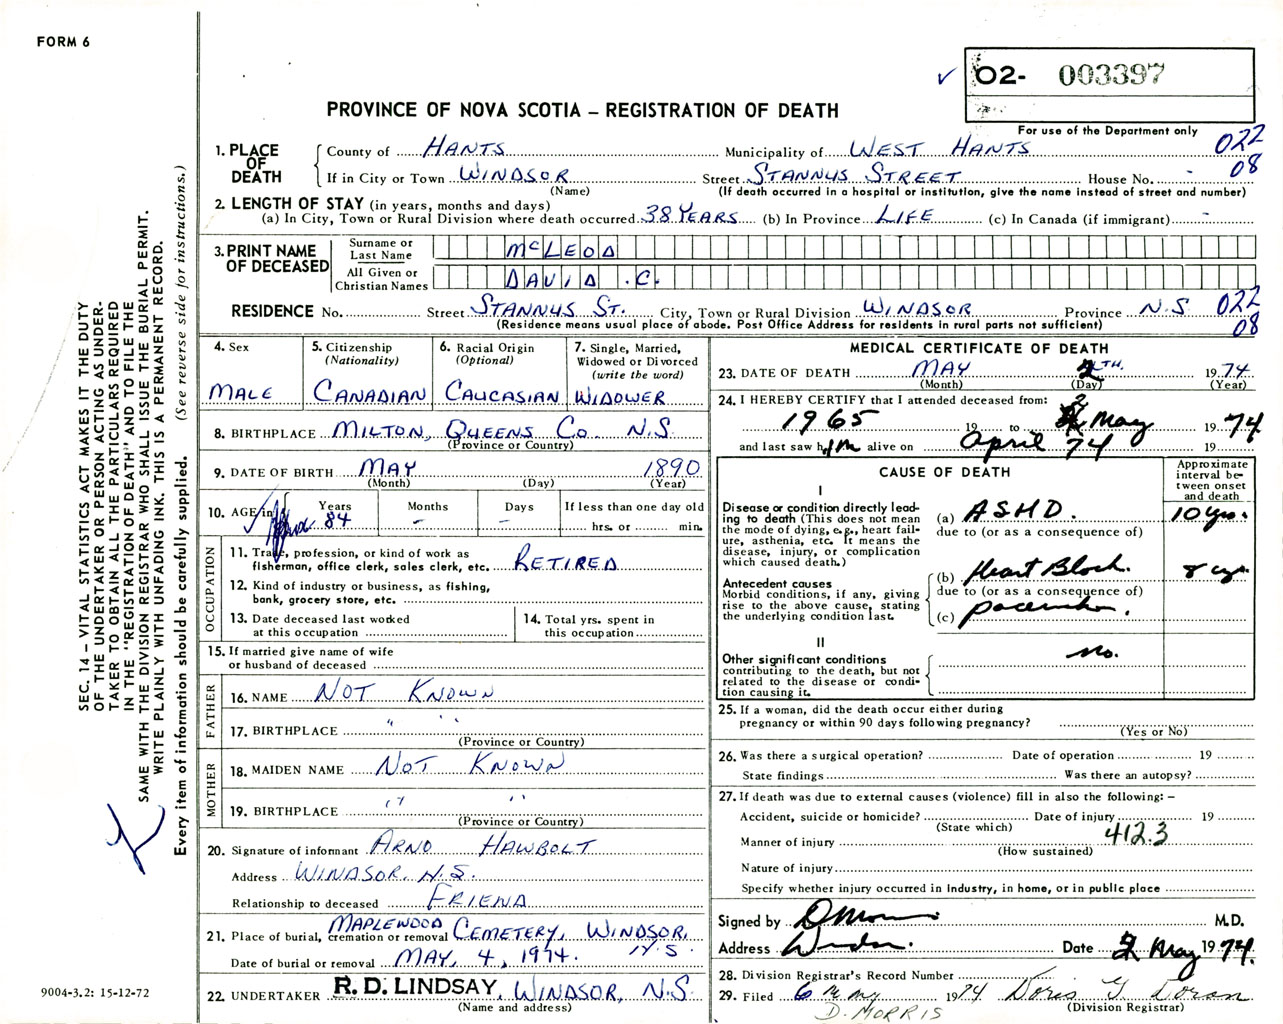 FORM 6
✓ 02- 003397
PROVINCE OF NOVA SCOTIA – REGISTRATION OF DEATH
For use of the Department only
1. PLACE OF DEATH County of HANTS Municipality of WEST HANTS 022
If in City or Town WINDSOR Street STANNUS STREET House No. - 08
(Name) (If death occurred in a hospital or institution, give the name instead of street and number)
2. LENGTH OF STAY (in years, months and days)
(a) In City, Town or Rural Division where death occurred. 38 YEARS (b) In Province LIFE (c) In Canada (if immigrant) -
3. PRINT NAME OF DECEASED Surname or Last Name McLEOD
All Given or Christian Names DAVID .C.
RESIDENCE No. Street STANNUS ST. City, Town or Rural Division WINDSOR Province N.S 022
(Residence means usual place of abode. Post Office Address for residents in rural parts not sufficient) 08
4. Sex MALE
5. Citizenship (Nationality) CANADIAN
6. Racial Origin (Optional) CAUCASIAN
7. Single, Married, Widowed or Divorced (write the word) WIDOWER
8. BIRTHPLACE MILTON, QUEENS CO. N.S.
(Province or Country)
9. DATE OF BIRTH MAY 1890
(Month) (Day) (Year)
10. AGE in Years 84 Months - Days - If less than one day old
hrs. or min.
OCCUPATION
11. Trade, profession, or kind of work as
fisherman, office clerk, sales clerk, etc. RETIRED
12. Kind of industry or business, as fishing,
bank, grocery store, etc.
13. Date deceased last worked
at this occupation
14. Total yrs. spent in
this occupation
15. If married give name of wife
or husband of deceased
FATHER
16. NAME NOT KNOWN
17. BIRTHPLACE " "
(Province or Country)
MOTHER
18. MAIDEN NAME NOT KNOWN
19. BIRTHPLACE " "
(Province or Country)
20. Signature of informant ARNO HAWBOLT
Address WINDSOR, N.S.
Relationship to deceased FRIEND
MAPLEWOOD
21. Place of burial, cremation or removal CEMETERY, WINDSOR, N.S
Date of burial or removal MAY, 4, 1974.
22. UNDERTAKER R. D. LINDSAY, WINDSOR, N.S.
(Name and address)
MEDICAL CERTIFICATE OF DEATH
23. DATE OF DEATH MAY 2TH. 1974.
(Month) (Day) (Year)
24. I HEREBY CERTIFY that I attended deceased from:
1965 19 to 2 May 1974
and last saw him alive on April 74 19
CAUSE OF DEATH
Approximate interval between onset and death
I
Disease or condition directly leading to death (This does not mean the mode of dying, e.g., heart failure, asthenia, etc. It means the disease, injury, or complication which caused death.)
(a) ASHD. 10 yrs.
due to (or as a consequence of)
Antecedent causes
Morbid conditions, if any, giving rise to the above cause, stating the underlying condition last.
(b) Heart Block. 8 yrs
due to (or as a consequence of)
(c) pacemaker.
II
Other significant conditions
contributing to the death, but not related to the disease or condition causing it.
no.
25. If a woman, did the death occur either during
pregnancy or within 90 days following pregnancy?
(Yes or No)
26. Was there a surgical operation? Date of operation 19
State findings Was there an autopsy?
27. If death was due to external causes (violence) fill in also the following: –
Accident, suicide or homicide? Date of injury 19
(State which) 412.3
Manner of injury
(How sustained)
Nature of injury
Specify whether injury occurred in Industry, in home, or in public place
Signed by M.D.
Address Windsor. Date 2 May 1974.
28. Division Registrar's Record Number
29. Filed 6 May 1974 Doris G Doran
D. MORRIS (Division Registrar)
SEC. 14 – VITAL STATISTICS ACT MAKES IT THE DUTY
OF THE UNDERTAKER OR PERSON ACTING AS UNDER-
TAKER TO OBTAIN ALL THE PARTICULARS REQUIRED
IN THE "REGISTRATION OF DEATH" AND TO FILE THE
SAME WITH THE DIVISION REGISTRAR WHO SHALL ISSUE THE BURIAL PERMIT.
WRITE PLAINLY WITH UNFADING INK. THIS IS A PERMANENT RECORD.
Every item of information should be carefully supplied. (See reverse side for instructions.)
9004-3.2: 15-12-72